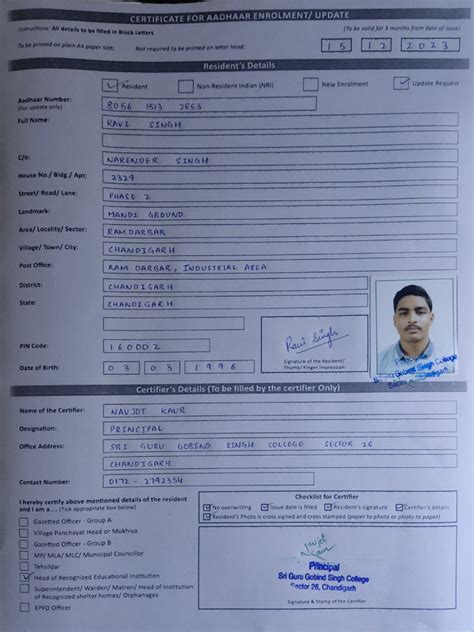 CERTIFICATE FOR AADHAAR ENROLMENT/ UPDATE
Instructions: All details to be filled in Block Letters
(To be valid for 3 months from date of issue)
To be printed on plain A4 paper size; Not required to be printed on letter head;
15 12 2023
Resident's Details
Resident Non-Resident Indian (NRI) New Enrolment Update Request
Aadhaar Number: 8056 1513 2853
(For update only)
Full Name: RAVI SINGH
C/o: NARENDER SINGH
House No./ Bldg./ Apt: 2329
Street/ Road/ Lane: PHASE 2
Landmark: MANDI GROUND
Area/ Locality/ Sector: RAMDARBAR
Village/ Town/ City: CHANDIGARH
Post Office: RAM DARBAR, INDUSTRIAL AREA
District: CHANDIGARH
State: CHANDIGARH
Ravi Singh
PIN Code: 160002
Signature of the Resident/
Thumb/ Finger Impression
Date of Birth: 03 03 1996
Principal
Sri Guru Gobind Singh College
Certifier's Details (To be filled by the certifier Only)
Name of the Certifier: NAVJOT KAUR
Designation: PRINCIPAL
Office Address: SRI GURU GOBIND SINGH COLLEGE SECTOR 26
CHANDIGARH
Contact Number: 0172 - 2792354
I hereby certify above mentioned details of the resident
and I am.... (Tick appropriate box below)
Gazetted Officer - Group A
Village Panchayat Head or Mukhiya
Gazetted Officer - Group B
MP/ MLA/ MLC/ Municipal Councillor
Tehsildar
Head of Recognized Educational Institution
Superintendent/ Warden/ Matron/ Head of Institution
of Recognized shelter homes/ Orphanages
EPFO Officer
Checklist for Certifier
No overwriting Issue date is filled Resident's signature Certifier's details
Resident's Photo is cross signed and cross stamped (paper to photo or photo to paper)
Navjot
Kaur
Principal
Sri Guru Gobind Singh College
Sector 26, Chandigarh
Signature & Stamp of the Certifier